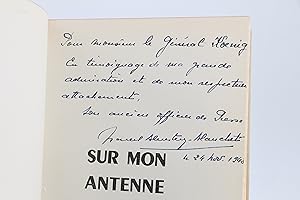 Pour monsieur le Général Koenig
En témoignage de ma grande
admiration et de mon respectueux
attachement,
Son ancien officier de Presse
le 24 nov. 194
SUR MON
ANTENNE